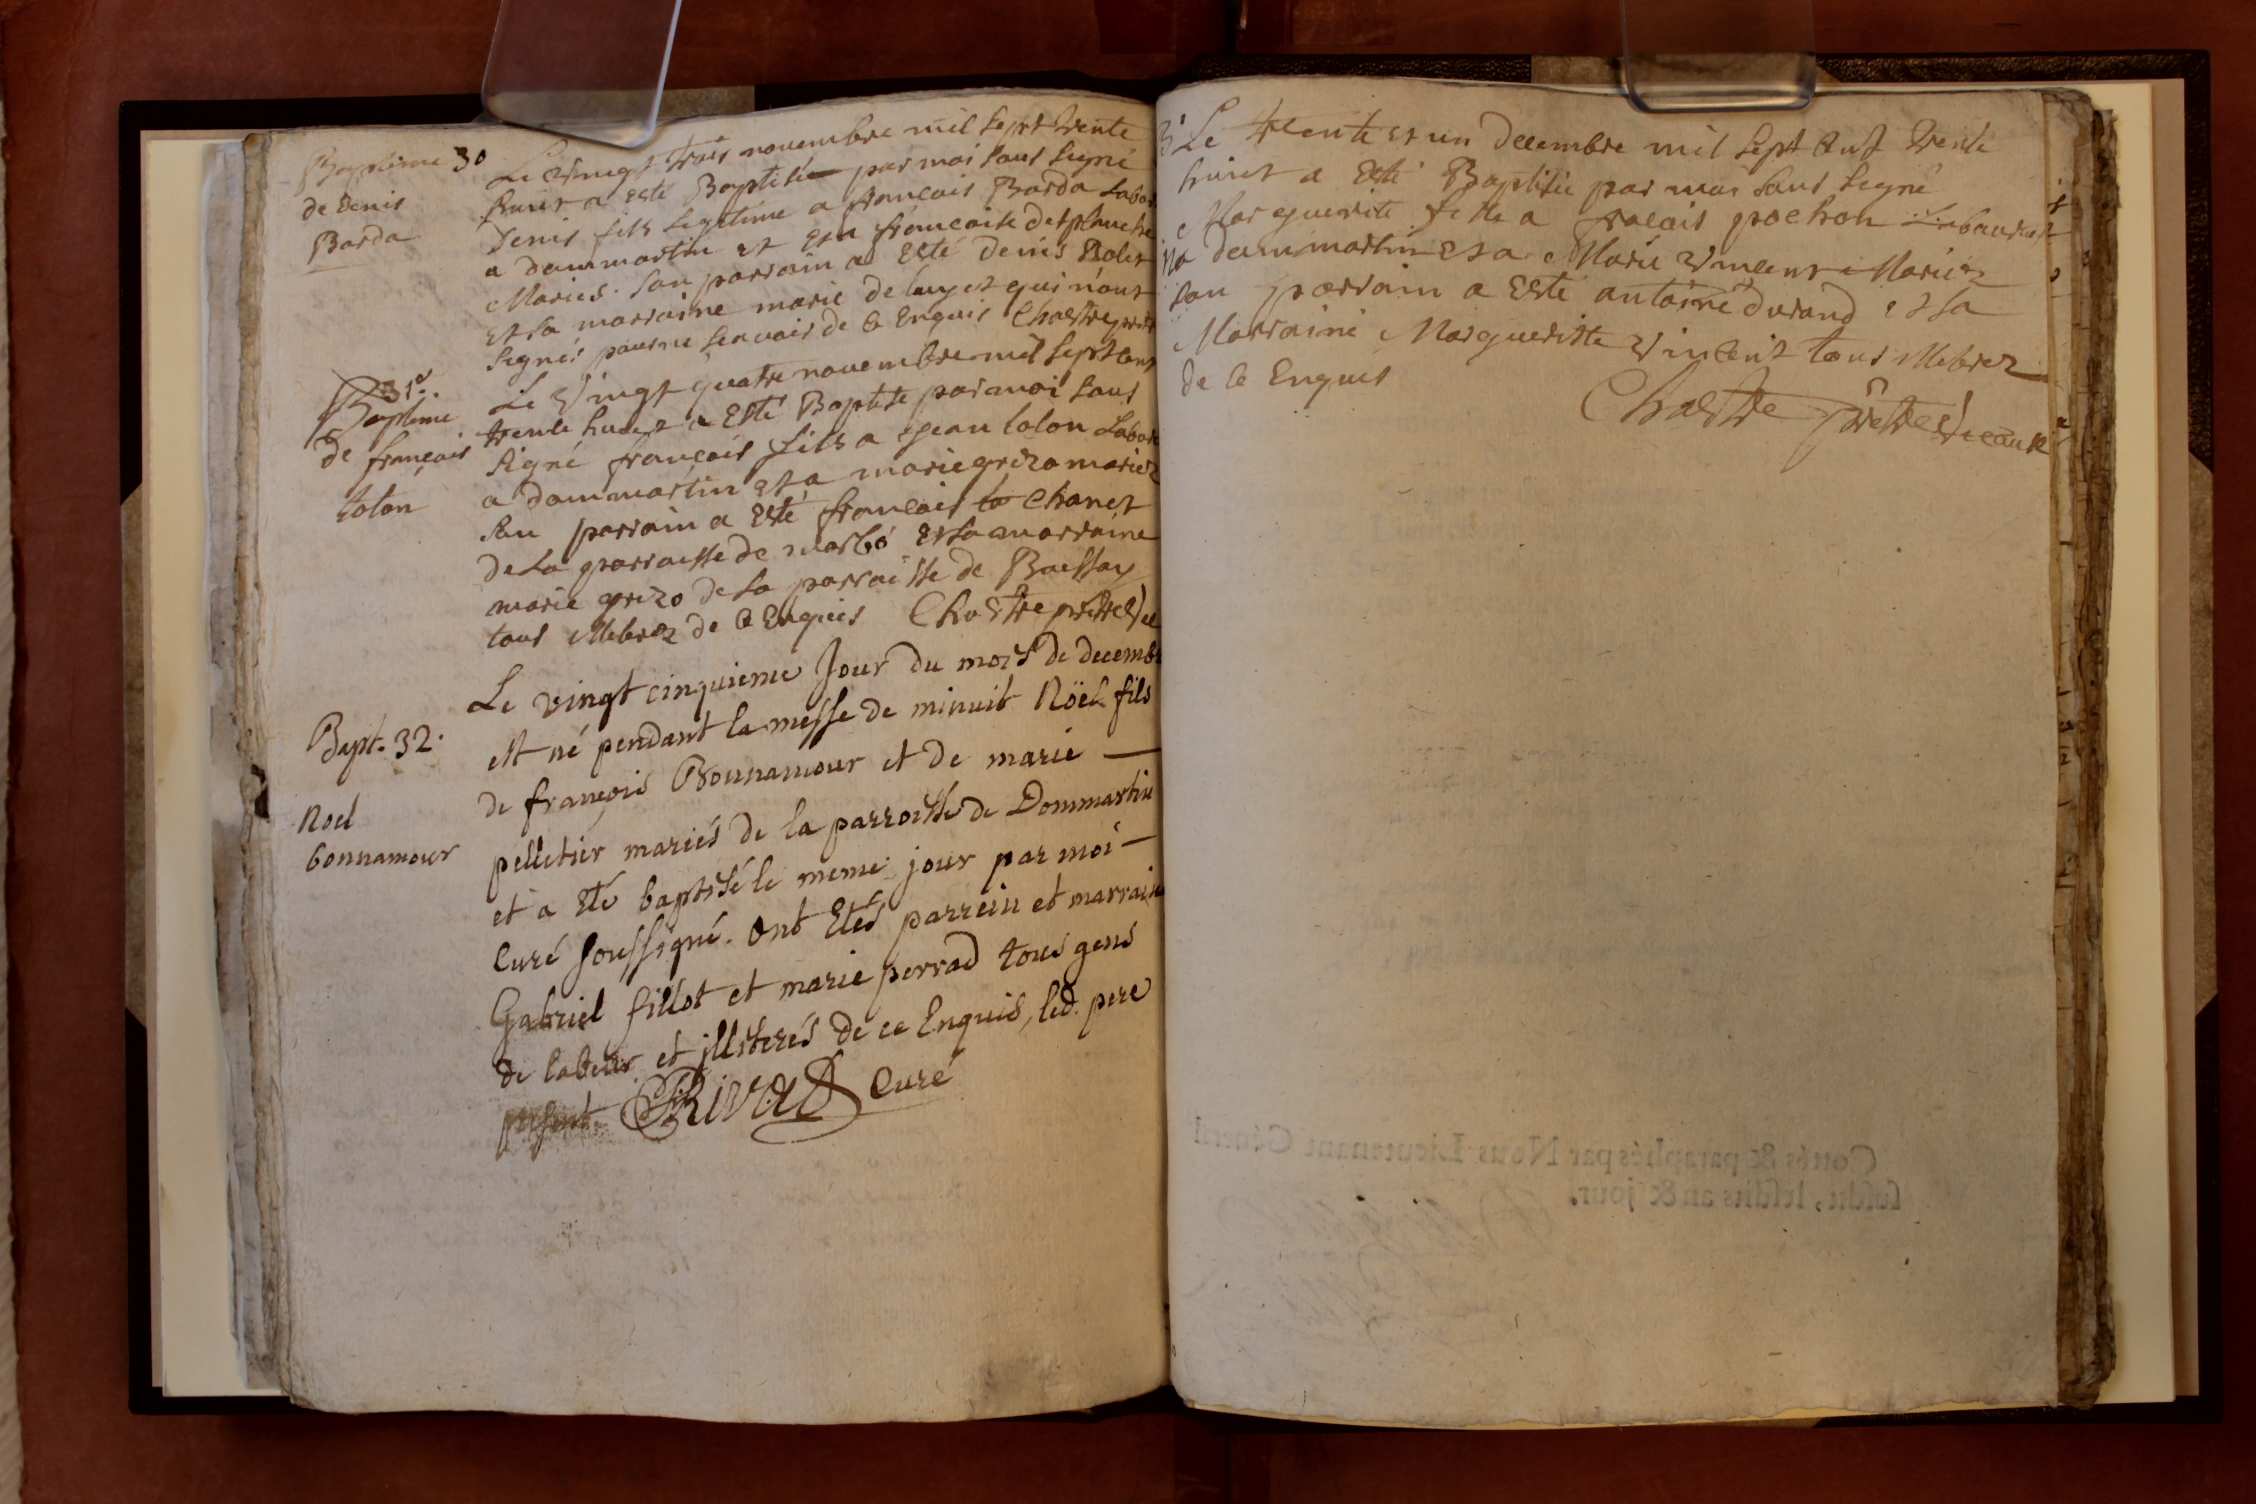 Baptême 30
de denis
Barda
Le vingt trois novembre mil sept trente
huict a esté Baptisé par moi sous signé
denis fils legitime a françois Barda Labor
a dommartin et a françoise desplanche
Mariés. son parrain a esté denis Bolet
et sa marraine marie de qui n'ont
signés pour ne scavoir de ce Enquis Chastre pretre
31e.
Baptême
de françois
Colon
Le vingt quatre novembre mil sept cent
trente huict a esté Baptisé par moi sous
signé françois fils a jean Colon Labor
a dommartin et a marie grizo mariez
son parrain a esté françois Chanet
de La parroisse de et sa marraine
marie grizo de La parroisse de
tous illebrez de ce Enquis Chastre pretre
Bapt. 32.
Noel
bonnamour
Le vingt cinquieme Jour du mois de decemb
est né pendant la messe de minuit Nöel fils
de françois Bonnamour et de marie
pelletier mariés de la parroisse de Dommartin
et a Eté baptisé le meme jour par moi
Curé soussigné. Ont Etés parrein et marraine
Gabriel fillot et marie perrad tous gens
de labeur et illiterés de ce Enquis, led. pere
present. Rivat Curé
Le trente et un decembre mil sept cent trente
huict a esté Baptisée par moi sous signé
Marguerite fille a fracois pochon
a dommartin et a Marie vincent Mariez
son parrain a Esté antoine durand et sa
Marraine Marguerite vincent tous illebrez
de ce Enquis
Chastre pretre vicaire
Cottés & paraphés par Nous Lieutenant Géneral
susdit, lesdits an & jour.